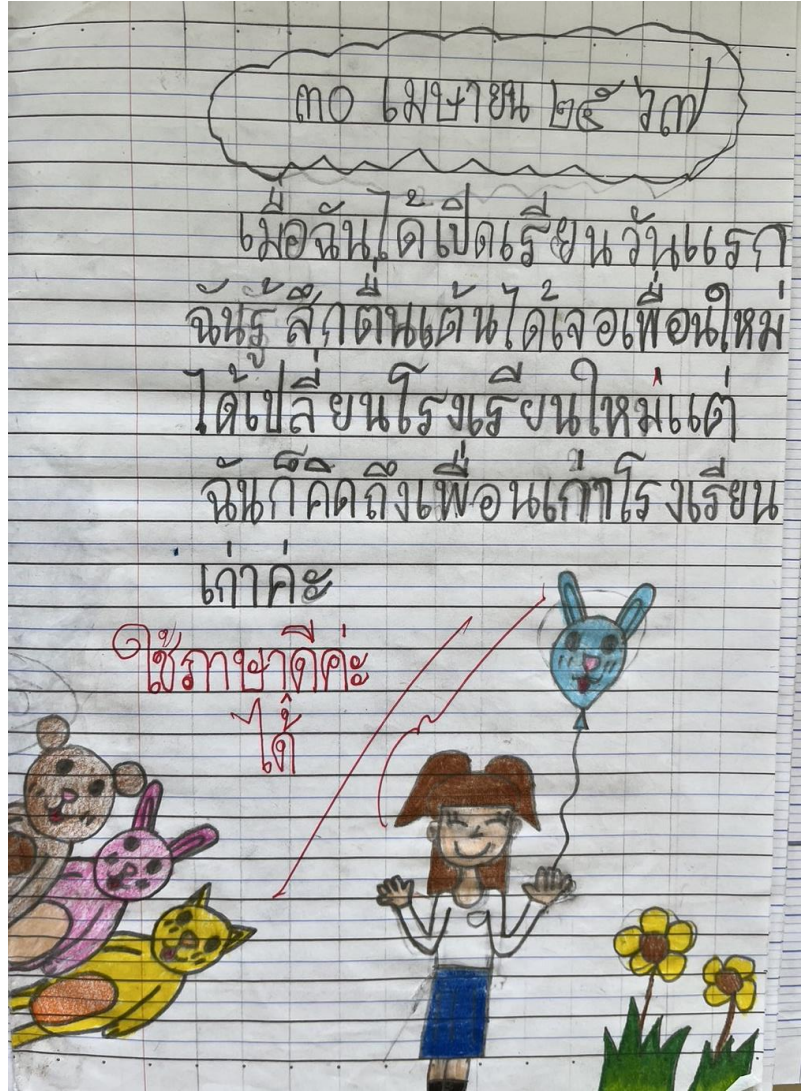 ๓๐ เมษายน ๒๕๖๗
เมื่อฉันได้เปิดเรียนวันแรก
ฉันรู้สึกตื่นเต้นได้เจอเพื่อนใหม่
ได้เปลี่ยนโรงเรียนใหม่แต่
ฉันก็คิดถึงเพื่อนเก่าโรงเรียน
เก่าค่ะ
ใช้ภาษาดีค่ะ